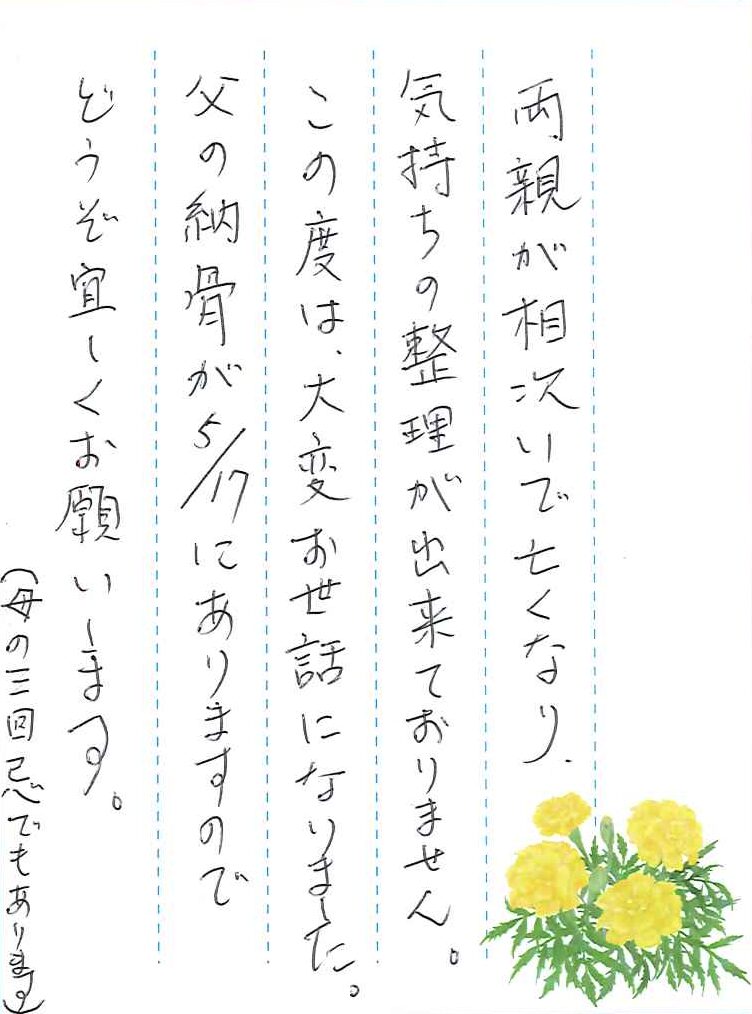 両親が相次いで亡くなり、
気持ちの整理が出来ておりません。
この度は、大変お世話になりました。
父の納骨が5/17にありますので
どうぞ宜しくお願いします。
(母の三回忌でもあります)